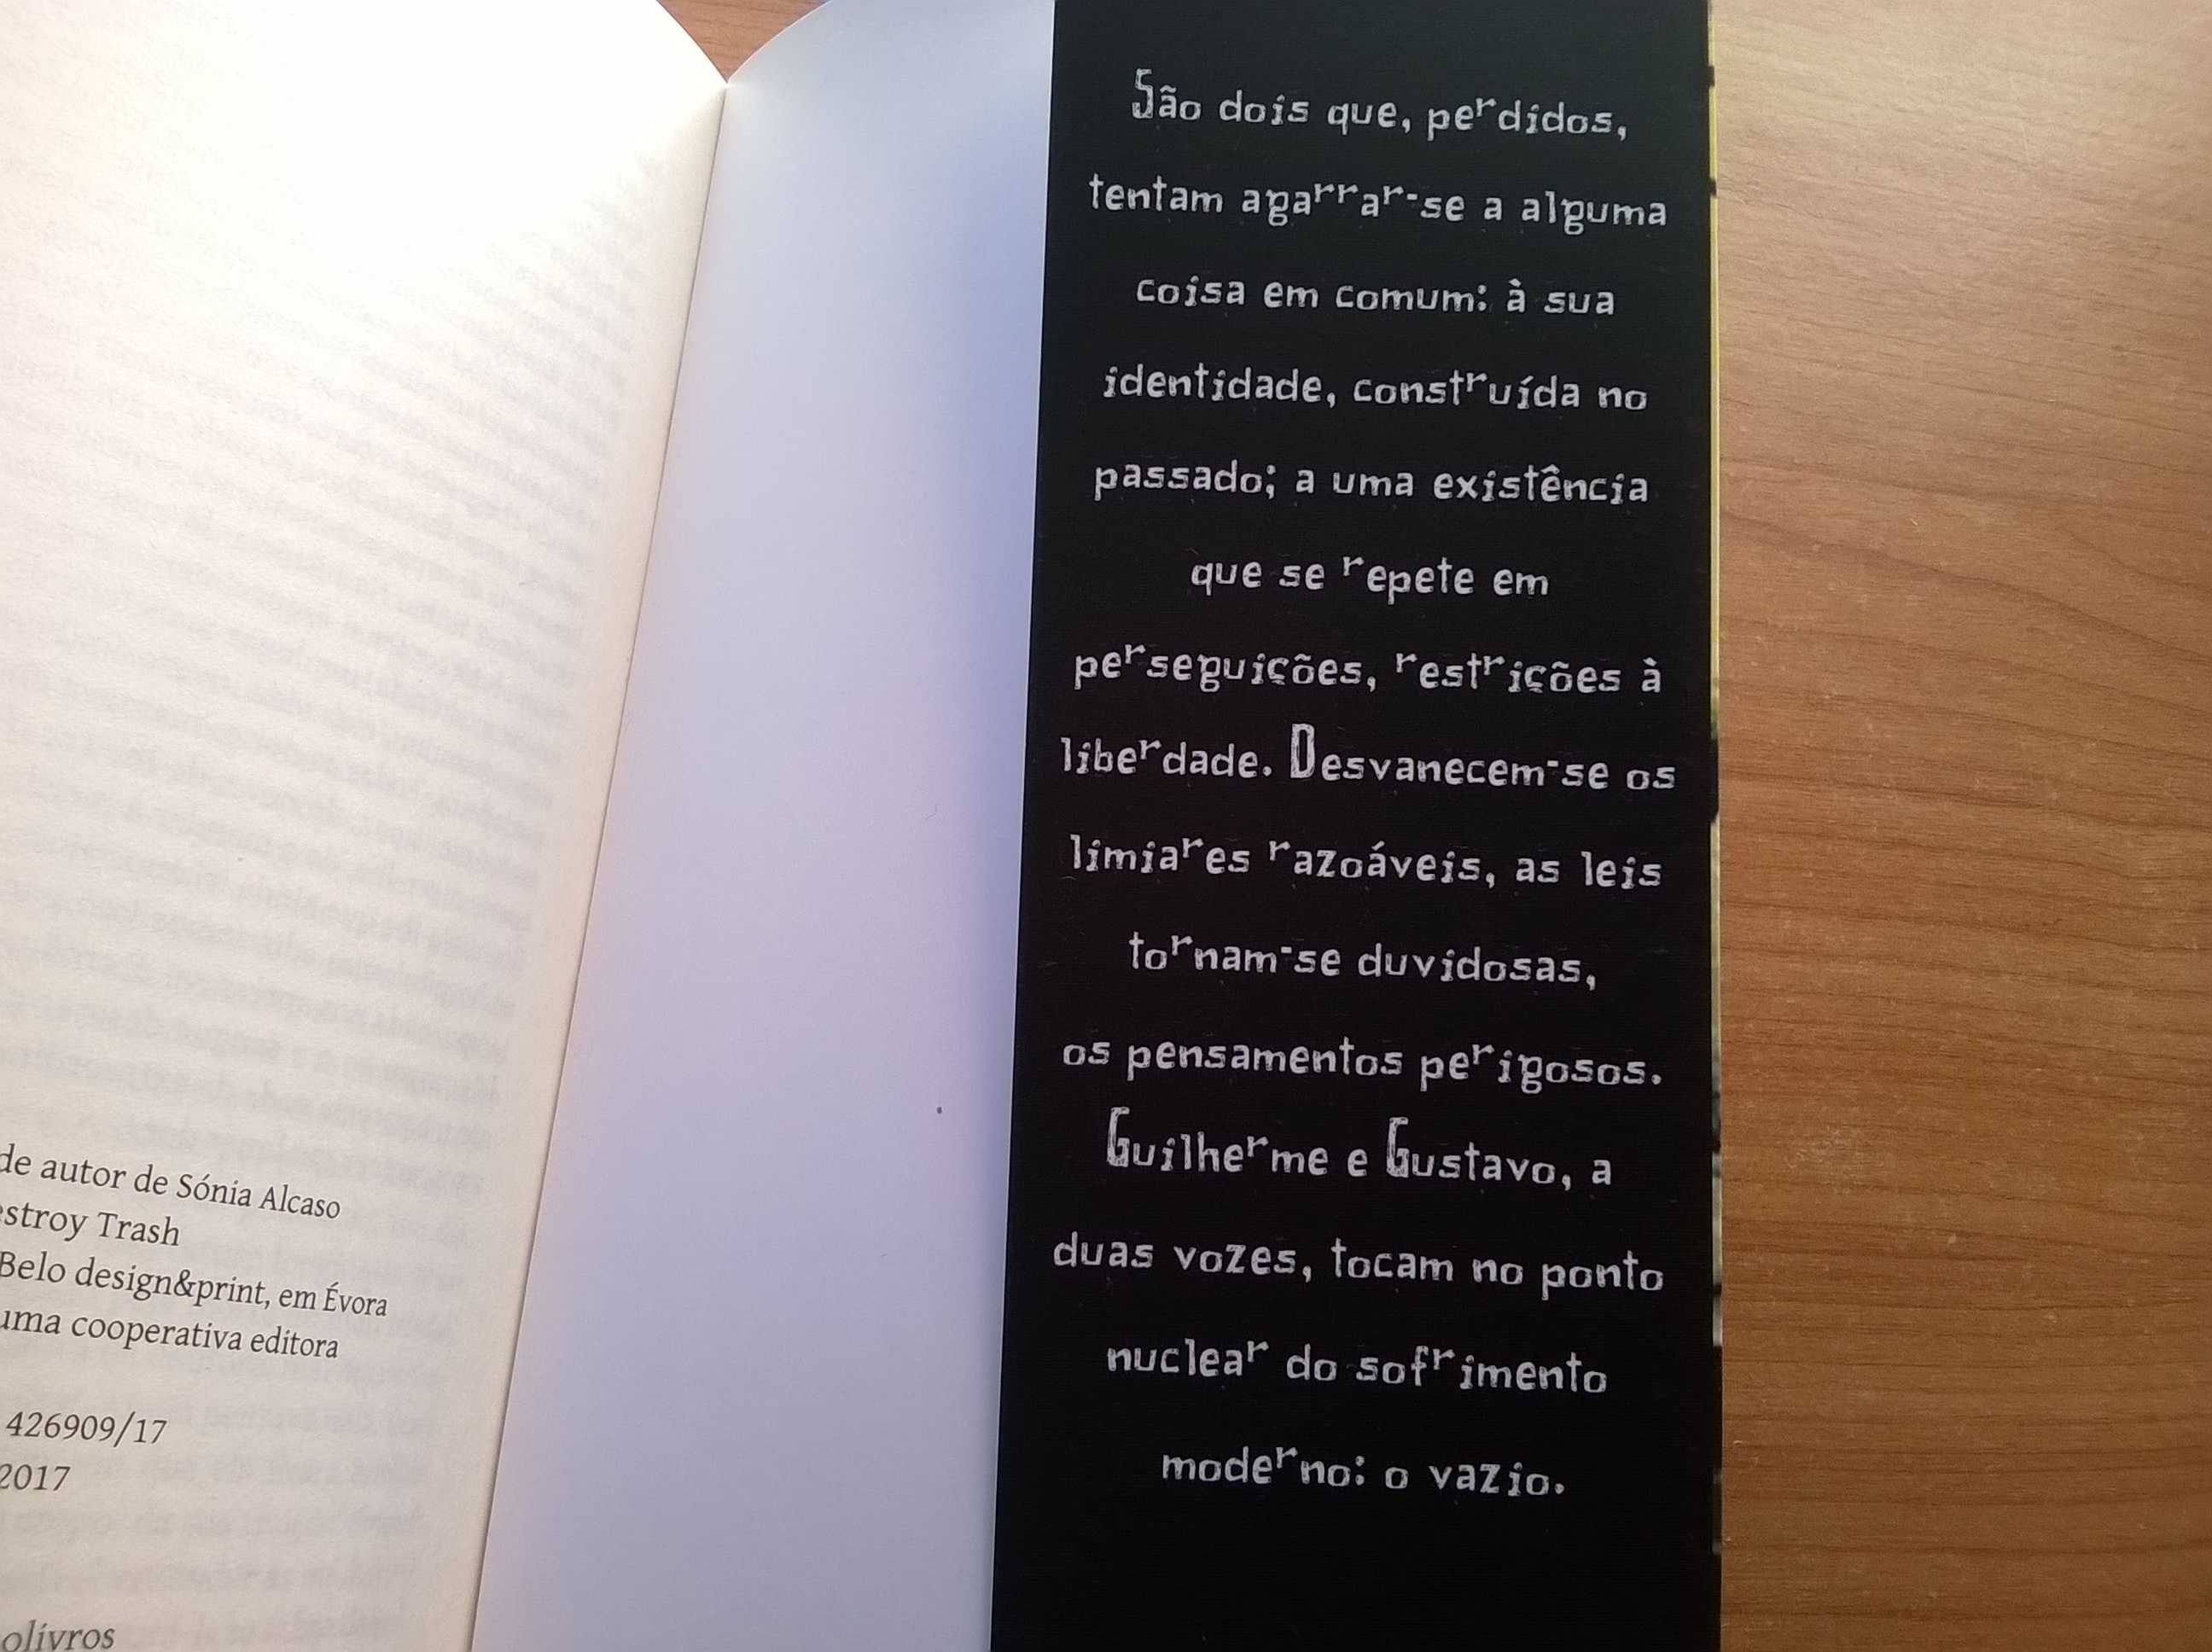 de autor de Sónia Alcaso
Trash
Belo design&print, em Évora
uma cooperativa editora
426909/17
2017
São dois que, perdidos,
tentam agarrar-se a alguma
coisa em comum: à sua
identidade, construída no
passado; a uma existência
que se repete em
perseguições, restrições à
liberdade. Desvanecem-se os
limiares razoáveis, as leis
tornam-se duvidosas,
os pensamentos perigosos.
Guilherme e Gustavo, a
duas vozes, tocam no ponto
nuclear do sofrimento
moderno: o vazio.